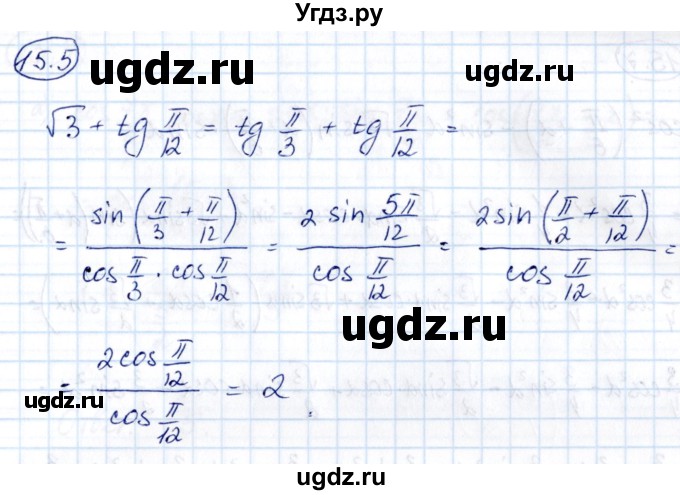 Угдз.ру
15.5
ugdz.ru ugdz.ru
√3 + tg π/12 = tg π/3 + tg π/12 =
= sin(π/3 + π/12) / (cos π/3 · cos π/12) = 2 sin 5π/12 / cos π/12 = 2 sin(π/2 + π/12) / cos π/12 =
ugdz.ru
= 2 cos π/12 / cos π/12 = 2.
ugdz.ru
ugdz.ru
ugdz.ru